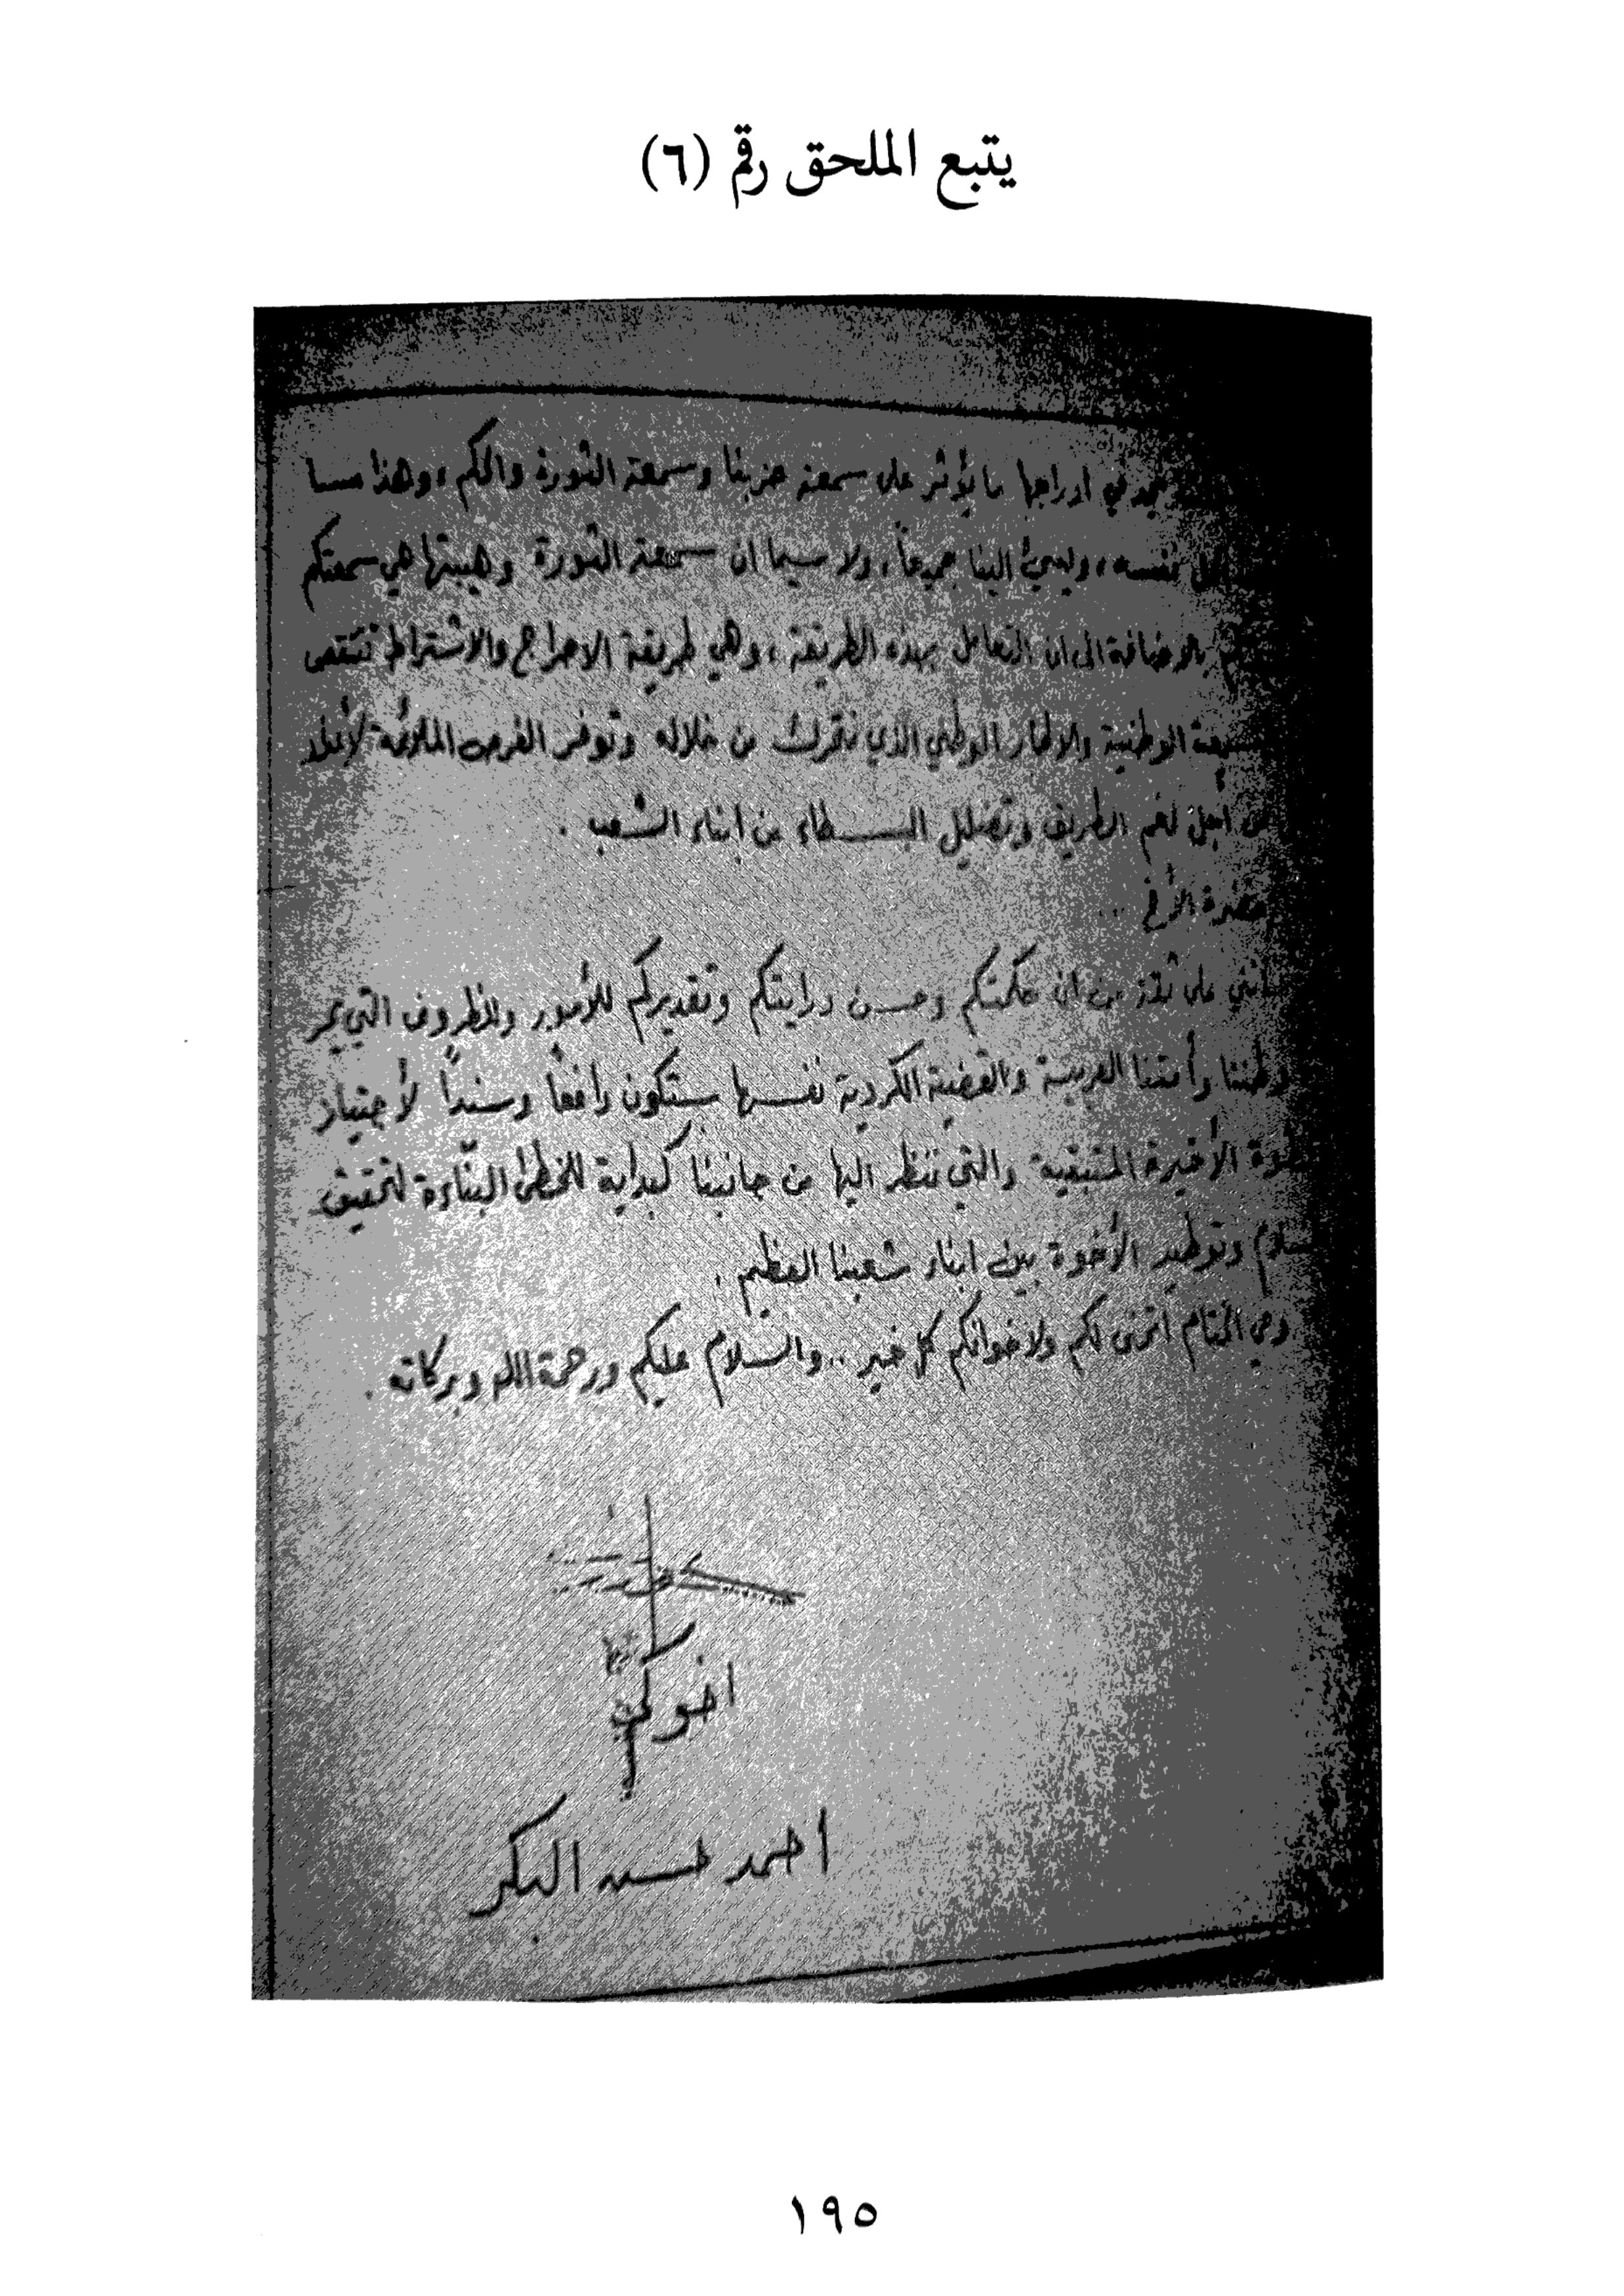 يتبع الملحق رقم (٦)
في ادراجها ما يؤثر على سمعة حزبنا وسمعة الثورة والحكم ، وهذا مما
نفسه ، ويسيئ الينا جميعاً ، ولا سيما ان سمعة الثورة وهيبتها هي سمعتكم
بالاضافة الى ان التعامل بهذه الطريقة ، وهي طريقة الاحراج والاشتراط تنتقص
الوطنية والاطار الوطني الذي نتحرك من خلاله وتوفر الفرص الملائمة لأعداء
من أجل لغم الطريق وتضليل البسطاء من ابناء الشعب .
حضرة الأخ ..
على ثقة من ان حكمتكم وحسن درايتكم وتقديركم للأمور وللظروف التي يمر
وطننا وأمتنا العربية والقضية الكردية نفسها ستكون رافعاً وسنداً لأجتياز
الأخيرة المتبقية والتي ننظر اليها من جانبنا كبداية للخطى البنّاءة لتحقيق
وتوطيد الأخوة بين ابناء شعبنا العظيم .
وفي الختام اتمنى لكم ولاخوانكم كل خير .. والسلام عليكم ورحمة الله وبركاته .
اخوكم
احمد حسن البكر
١٩٥